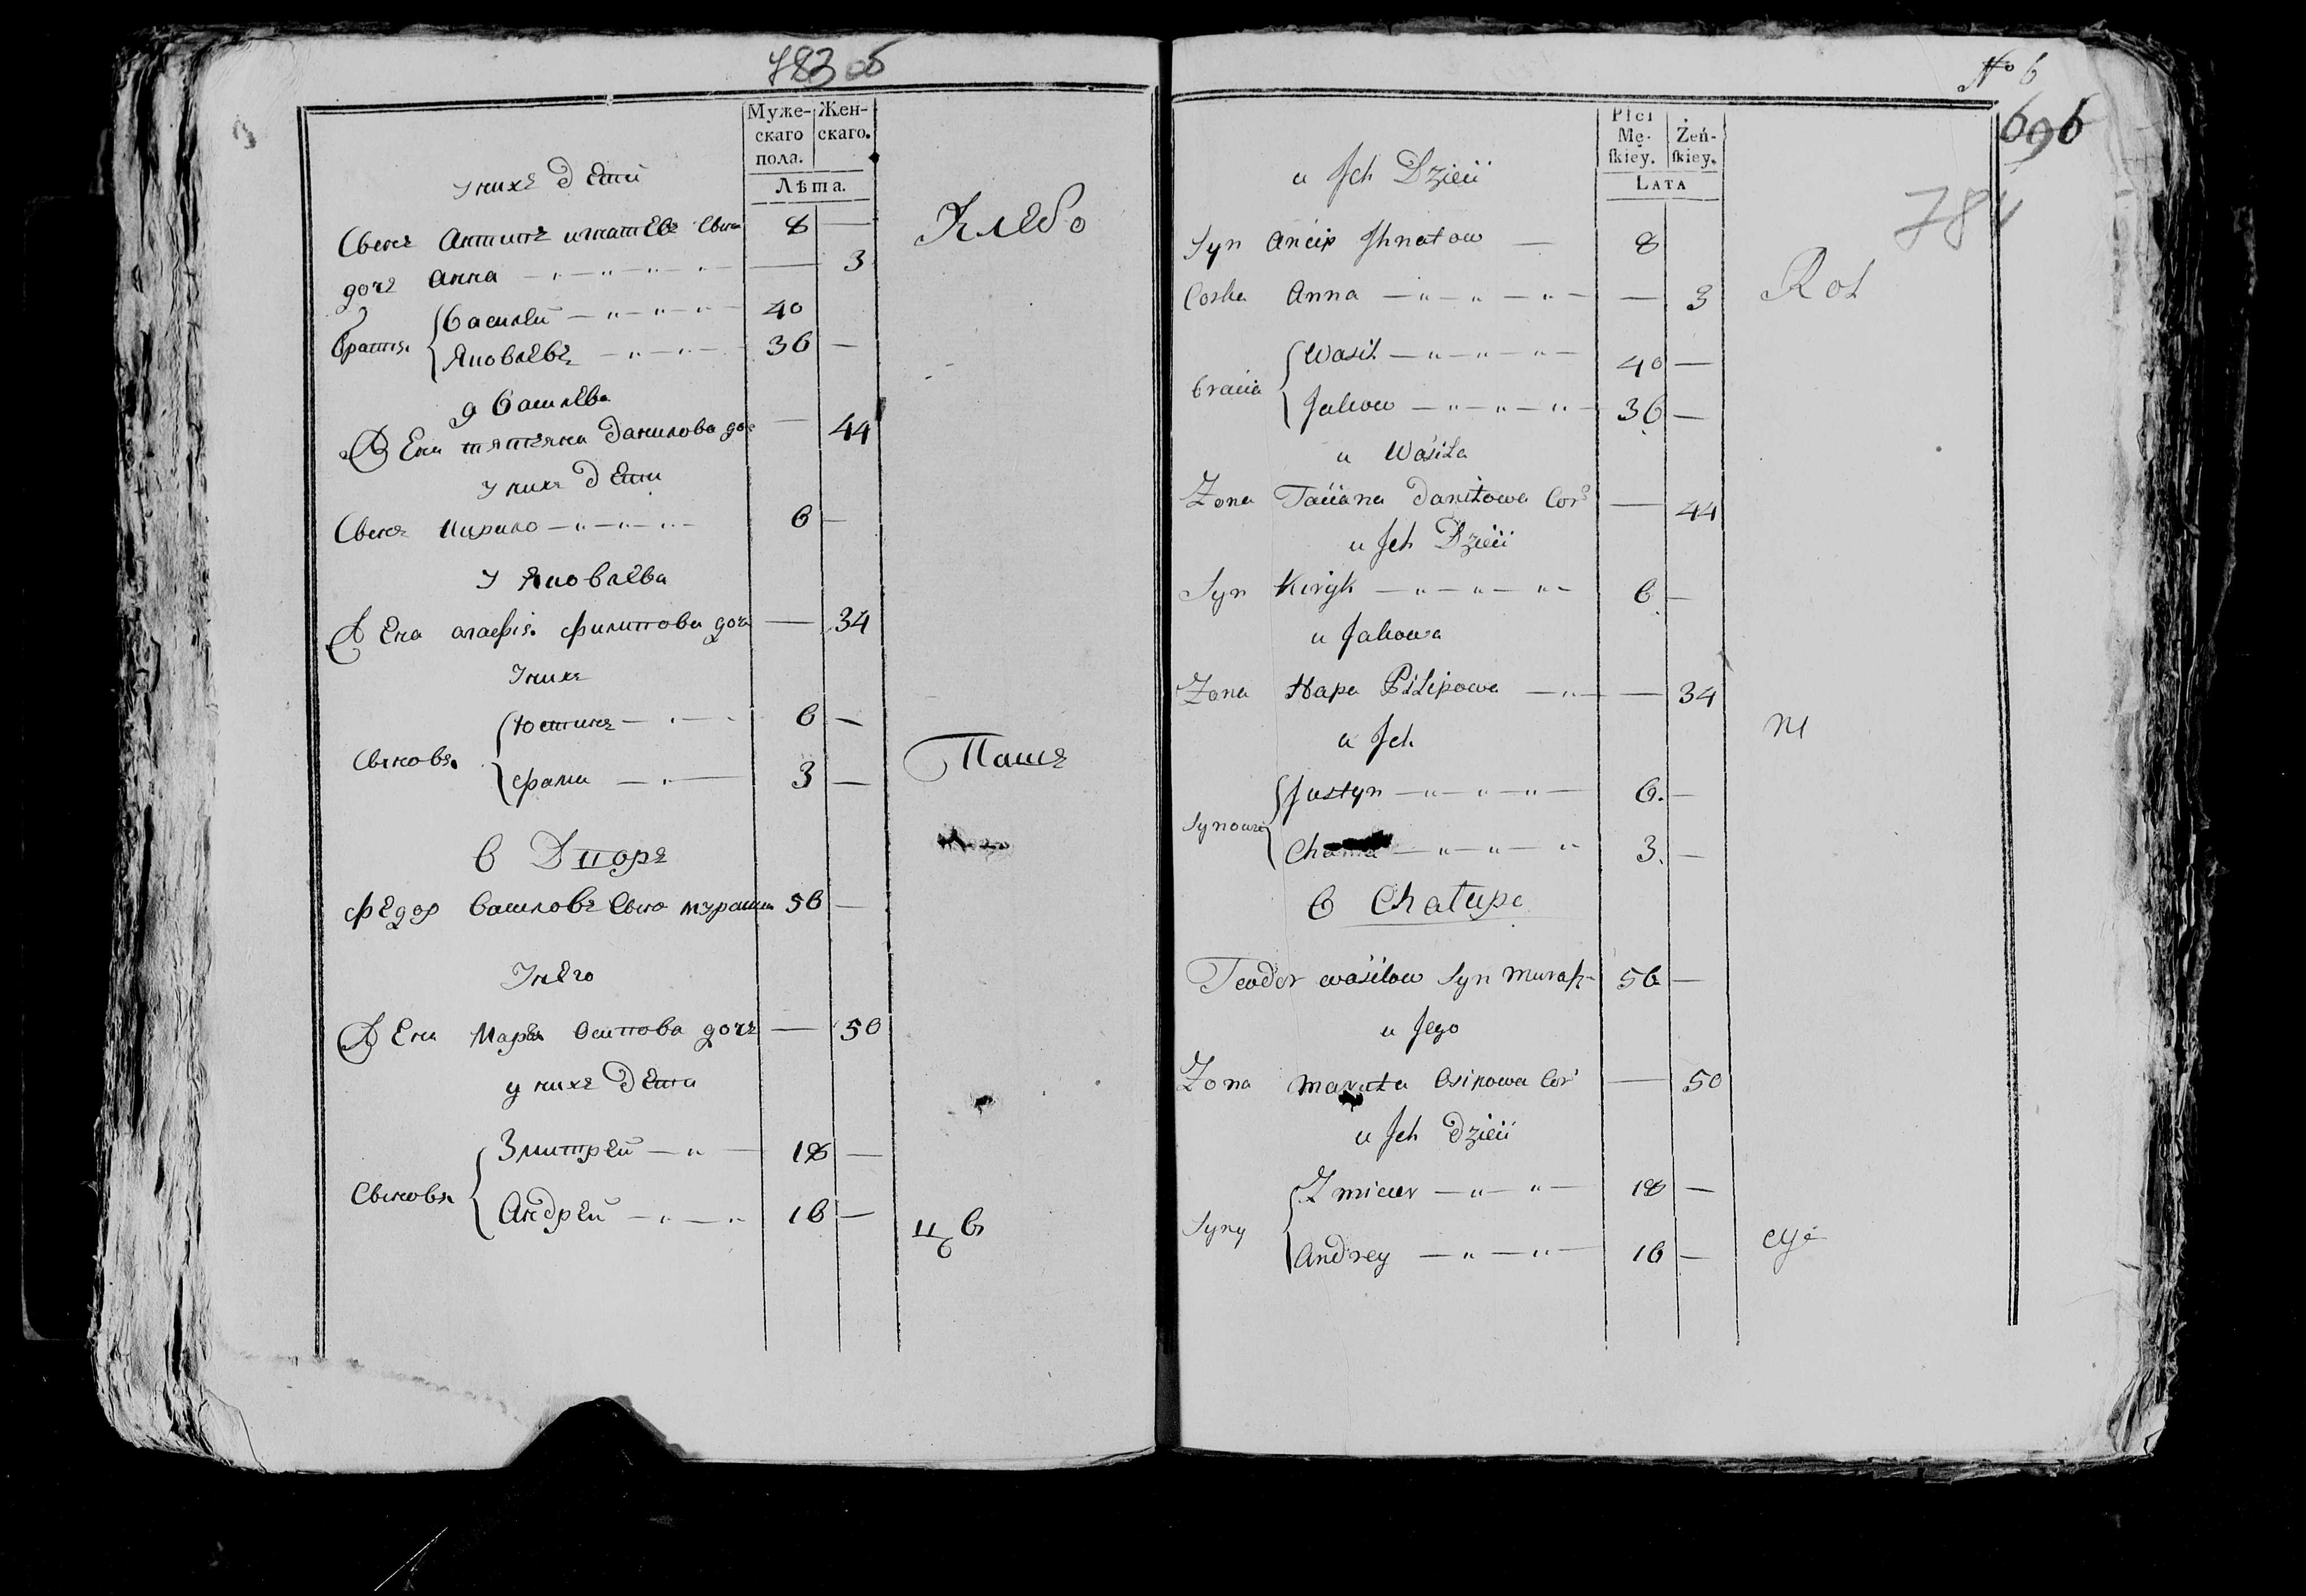 783 об
Муже-
скаго
пола.
Жен-
скаго.
Лѣта.
у нихъ дети
Сынъ Антипъ игнатьевъ Сынъ 8 —
Хлебо
дочъ Анна — 3
братия
Василей 40
Яковлевъ 36 —
у Василева
Жена татьяна данилова доч — 44
у нихъ дети
Сынъ Кирило 6 —
у Яковлева
Жена агафия филипова доч — 34
у нихъ
Сыновя
Юстинъ 6 —
фама 3 —
Пашъ
в Дворе
федор василовъ Сынъ мурашк 56 —
у него
Жена Марья Осипова дочъ — 50
у нихъ дети
Сыновя
Змитрей 18 —
Андрей 16 —
цов
№ 6
696
784
Płci
Mę-
ſkiey.
Żeń-
ſkiey.
LATA
u Jch Dzieci
Syn Ancip Jhnatow — 8
Corka Anna — 3
Rol
Bracia
Wasil 40 —
Jakow 36 —
u Wasila
Zona Taciana Daniłowa Cor — 44
u Jch Dzieci
Syn Kiryk 6 —
u Jakowa
Zona Hapa Pilipowa — 34
u Jch
ni
Synowie
Justyn 6. —
Choma 3. —
w Chałupe
Teodor wasilow Syn Muraſz 56 —
u Jego
Zona maruta Osipowa Cor — 50
u Jch Dzieci
Syny
Zmicier 18 —
Andrey 16 —
cy